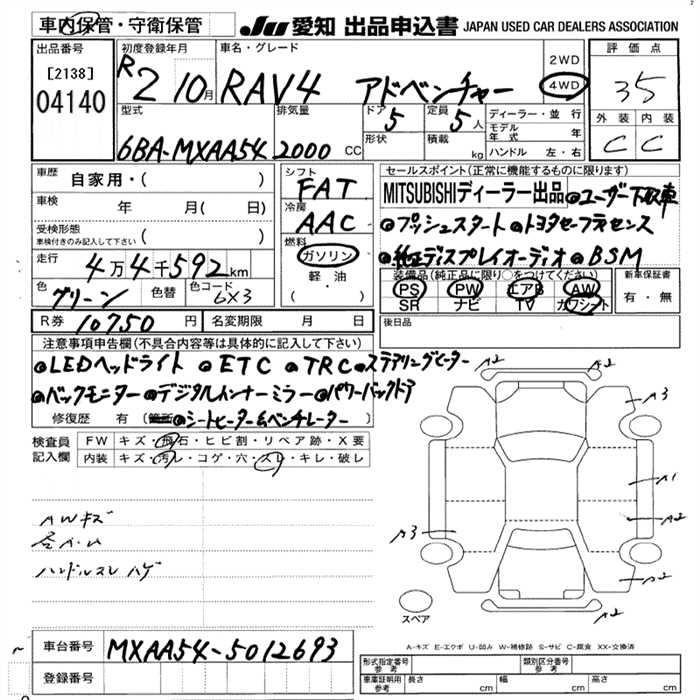 車内保管・守衛保管
JU 愛知 出品申込書 JAPAN USED CAR DEALERS ASSOCIATION
出品番号 初度登録年月 車名・グレード 評価点
[2138]
04140
R2 10月 RAV4 アドベンチャー 2WD 4WD 35
型式 排気量 ドア 5 定員 5人 ディーラー・並行 外装 内装
モデル年式 年
6BA-MXAA54 2000 CC 形状 積載 kg ハンドル 左・右 C C
車歴 自家用・( ) シフト FAT セールスポイント(正常に機能するものに限ります)
車検 年 月( 日) 冷房 AAC MITSUBISHIディーラー出品 ●ユーザー下取車
受検形態 ( )
車検付きのみ記入して下さい
●プッシュスタート ●トヨタセーフティセンス
燃料 ガソリン 軽・油 ( )
●純正ディスプレイオーディオ ●BSM
走行 4万4千592km 装備品(純正品に限り○をつけてください) 新車保証書
色 グリーン 色替 色コード 6X3 PS PW エアB AW 有・無
SR ナビ TV カワシート
R券 10750円 名変期限 月 日 後日品
注意事項申告欄(不具合内容等は具体的に記入して下さい)
●LEDヘッドライト ●ETC ●TRC ●ステアリングヒーター
●バックモニター ●デジタルインナーミラー ●パワーバックドア
修復歴 有 ( ●シートヒーター&ベンチレーター
検査員記入欄 FW キズ・飛石・ヒビ割・リペア跡・X要
内装 キズ・汚レ・コゲ・穴・スレ・キレ・破レ
A2 A2
A3
A1
A2
A3
A2
A2
AWキズ
ハンドルスレ ハゲ
スペア
A-キズ E-エクボ U-凹み W-補修跡 S-サビ C-腐食 XX-交換済
車台番号 MXAA54-5012693
登録番号
形式指定番号 参考 類別区分番号 参考
車庫証明用 参考 長さ cm 幅 cm 高さ cm